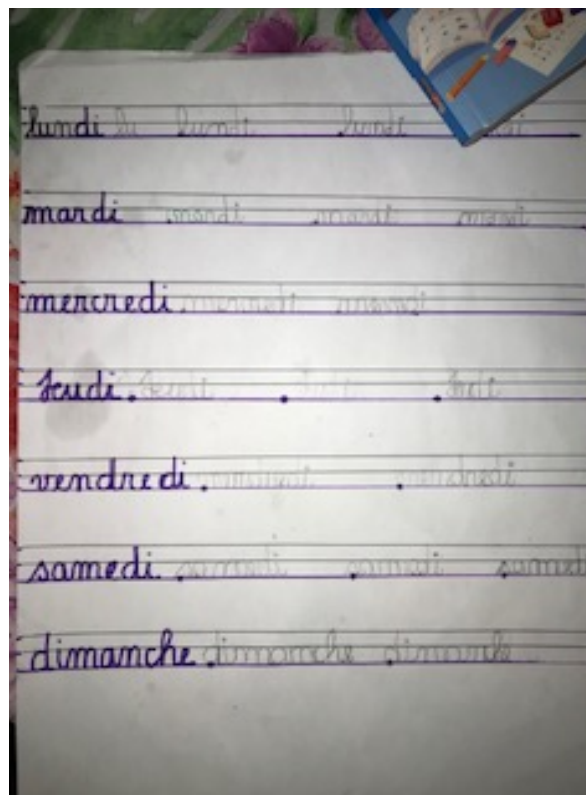 lundi lu lundi lundi
mardi mardi mardi mardi
mercredi mercredi
Jeudi . Jeudi . .
vendredi . .
samedi . samedi . samedi . samedi
dimanche . dimanche . dimanche